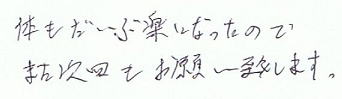 体もだいぶ楽になったので
また次回もお願い致します。